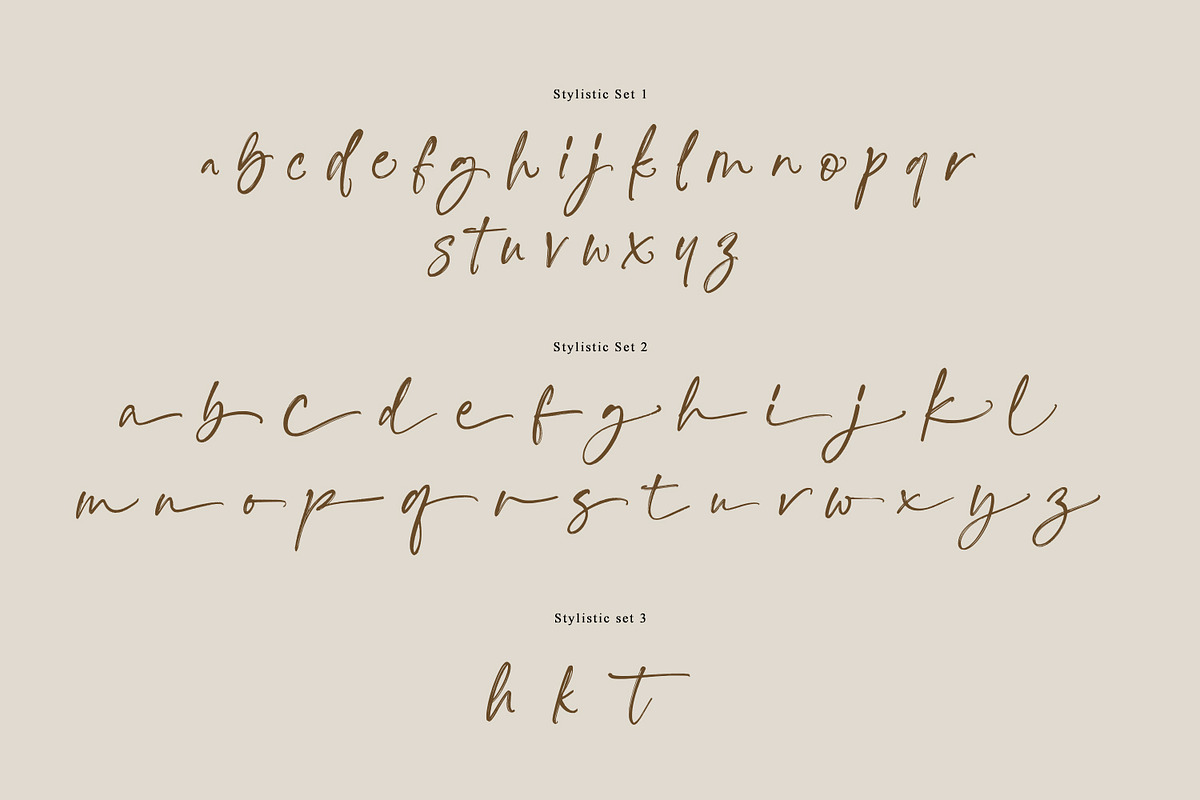 Stylistic Set 1
a b c d e f g h i j k l m n o p q r
s t u v w x y z
Stylistic Set 2
a b c d e f g h i j k l
m n o p q r s t u v w x y z
Stylistic set 3
h k t